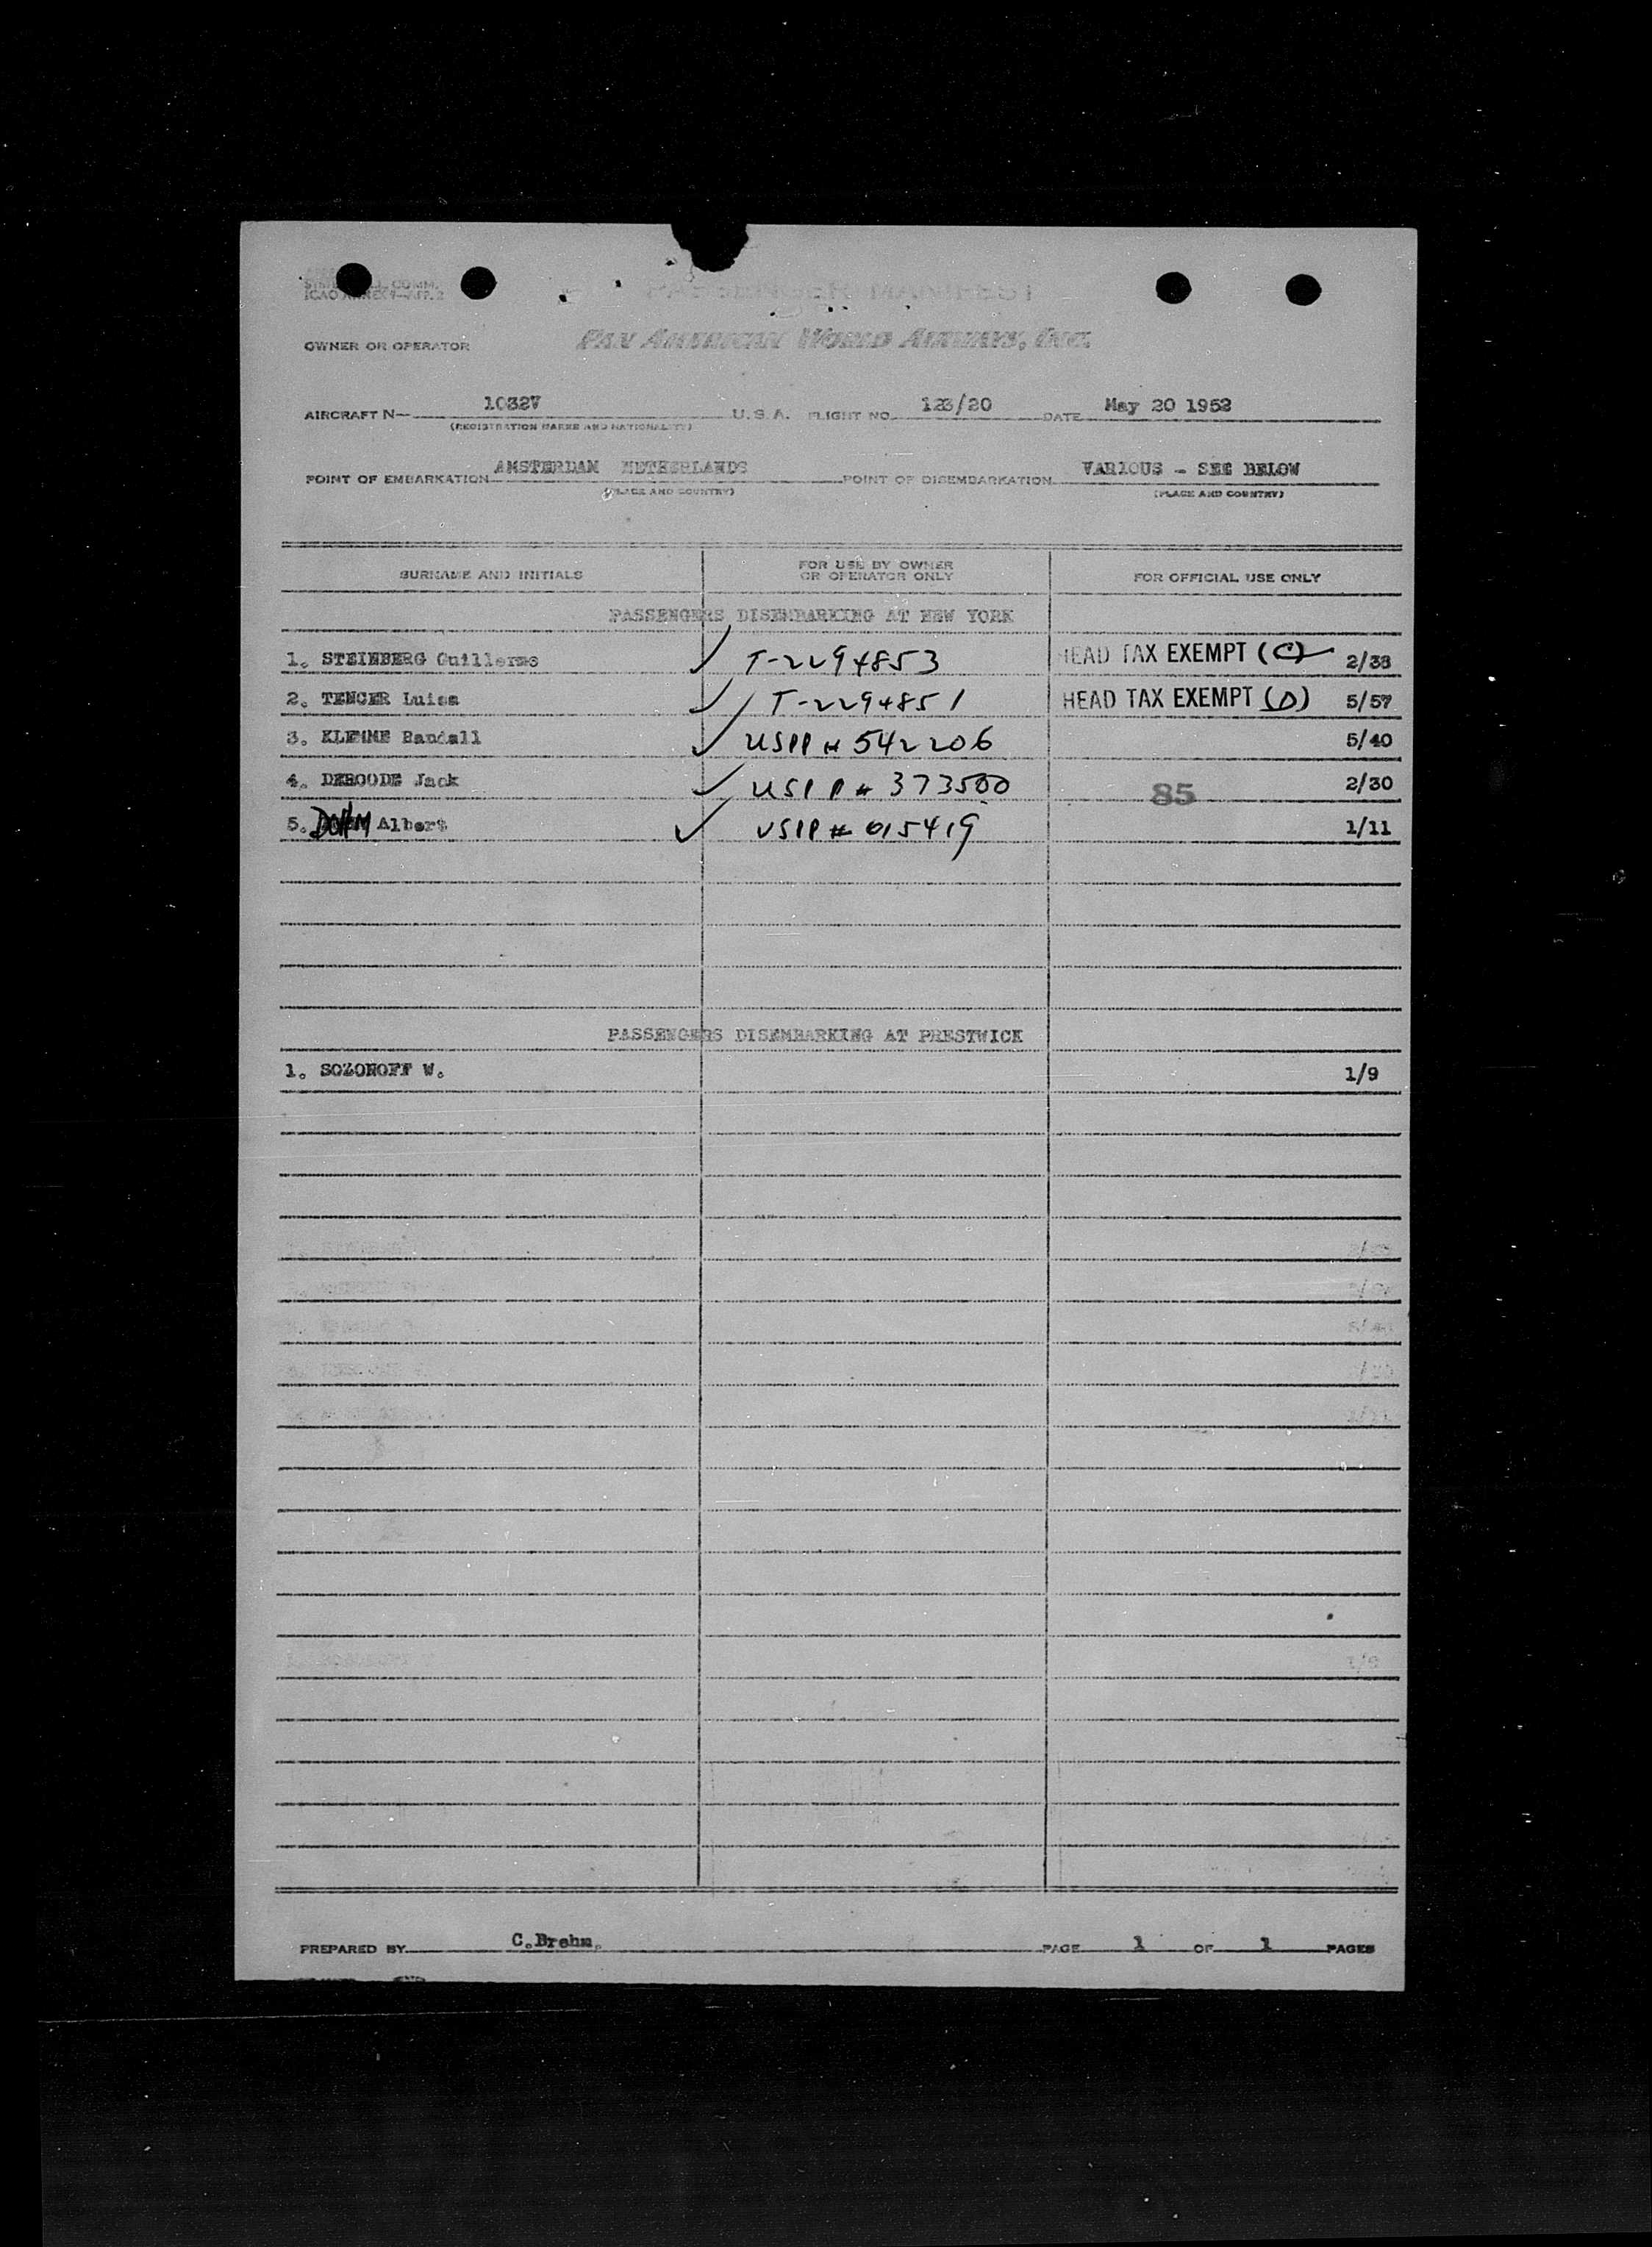 ICAO ANNEX 9—APP. 2
PASSENGER MANIFEST
OWNER OR OPERATOR PAN AMERICAN WORLD AIRWAYS, INC.
AIRCRAFT N— 1032V U.S.A. FLIGHT NO. 123/20 DATE May 20 1952
(REGISTRATION MARKS AND NATIONALITY)
POINT OF EMBARKATION AMSTERDAM NETHERLANDS POINT OF DISEMBARKATION VARIOUS - SEE BELOW
(PLACE AND COUNTRY) (PLACE AND COUNTRY)
SURNAME AND INITIALS FOR USE BY OWNER OR OPERATOR ONLY FOR OFFICIAL USE ONLY
PASSENGERS DISEMBARKING AT NEW YORK
1. STEINBERG Guillermo ✓ T-2294853 HEAD TAX EXEMPT (C) 2/38
2. TENCER Luisa ✓ T-2294851 HEAD TAX EXEMPT (D) 5/57
3. KLEMME Randall ✓ USPP # 542206 5/40
4. DEROODE Jack ✓ USPP # 373500 85 2/30
5. DOHM Albert ✓ USPP # 015419 1/11
PASSENGERS DISEMBARKING AT PRESTWICK
1. SOZONOFF W. 1/9
PREPARED BY C.Brehm. PAGE 1 OF 1 PAGES